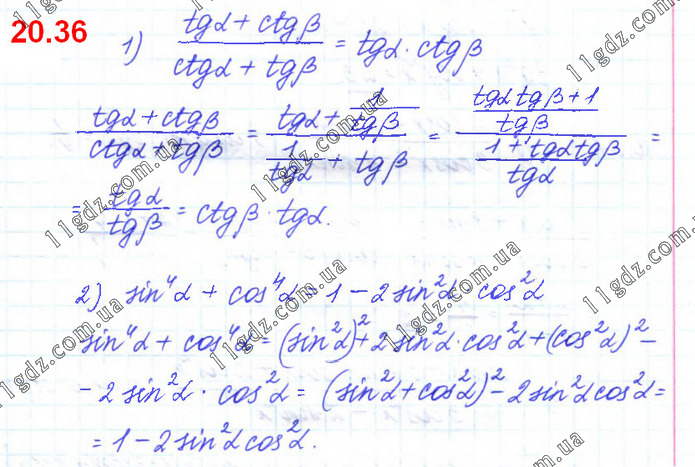 20.36
1) (tgα + ctgβ)/(ctgα + tgβ) = tgα · ctgβ
(tgα + ctgβ)/(ctgα + tgβ) = (tgα + 1/tgβ)/(1/tgα + tgβ) = ((tgα tgβ + 1)/tgβ)/((1 + tgα tgβ)/tgα) =
= tgα/tgβ = ctgβ · tgα.
2) sin⁴α + cos⁴α = 1 - 2 sin²α · cos²α
sin⁴α + cos⁴α = (sin²α)² + 2 sin²α · cos²α + (cos²α)² -
- 2 sin²α · cos²α = (sin²α + cos²α)² - 2 sin²α cos²α =
= 1 - 2 sin²α cos²α.
11gdz.com.ua
11gdz.com.ua
11gdz.com.ua
11gdz.com.ua
11gdz.com.ua
11gdz.com.ua
11gdz.com.ua
11gdz.com.ua